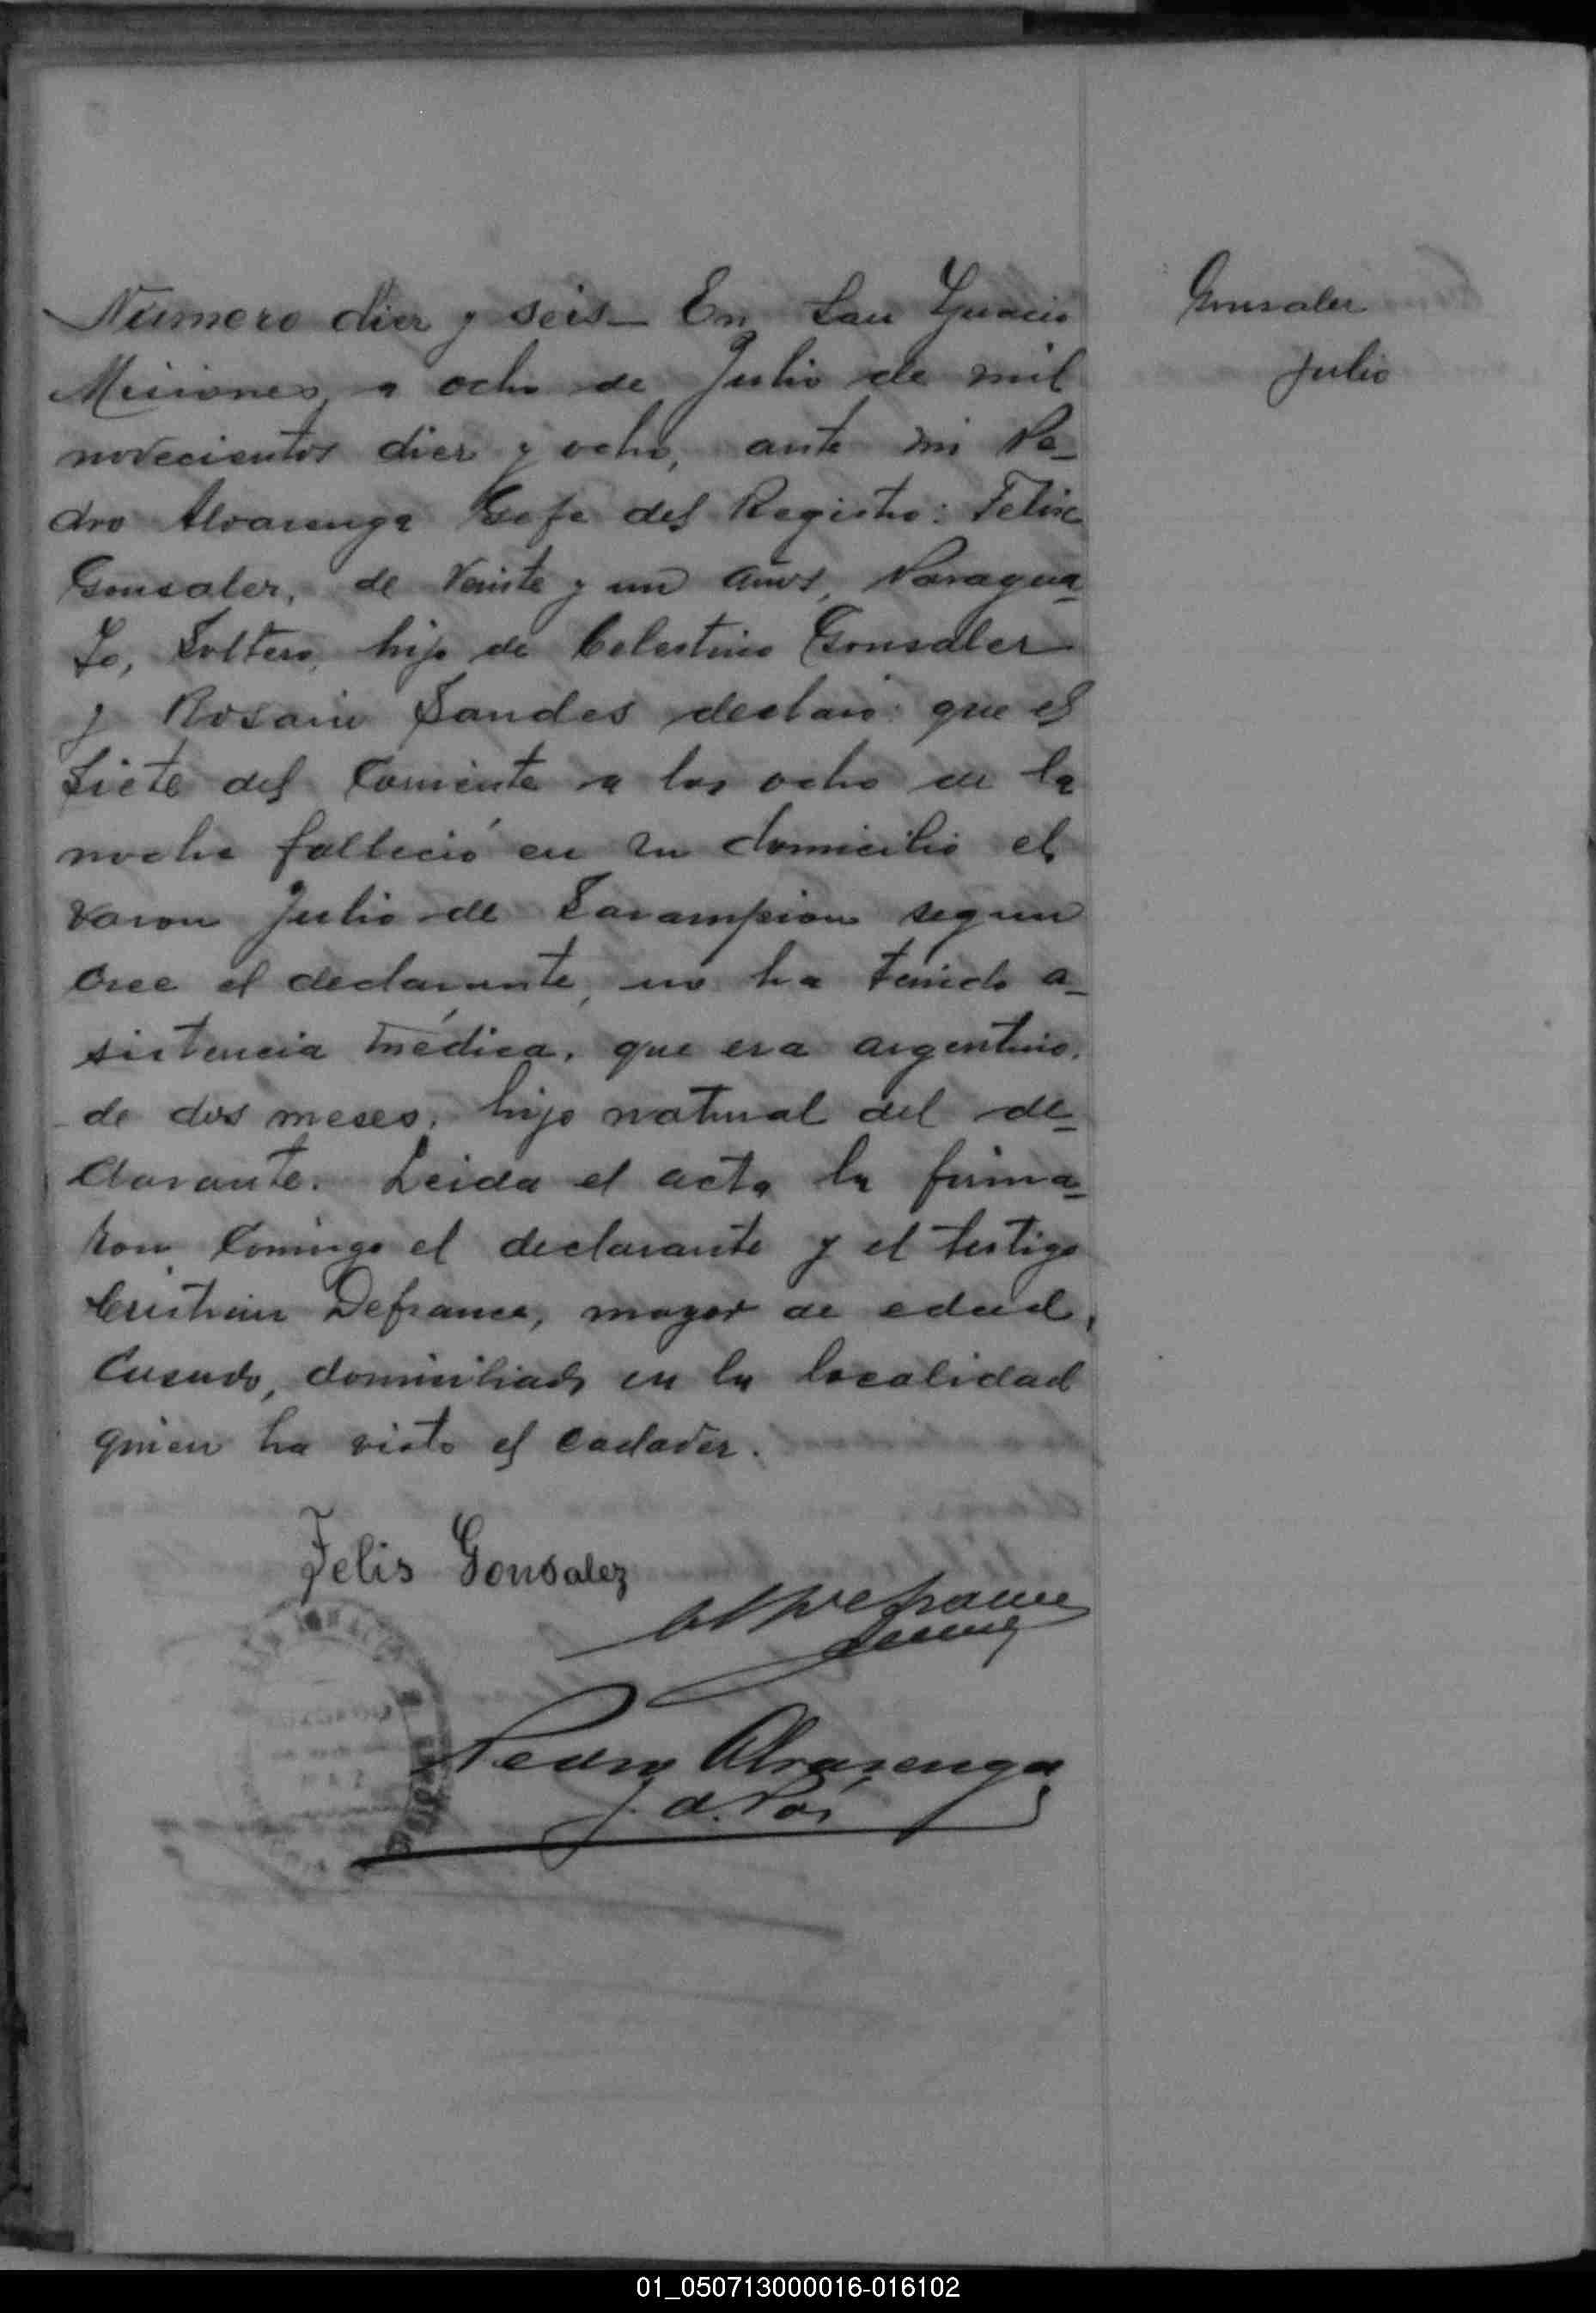 Gonsalez
Julio
Número diez y seis— En San Ygnacio
Misiones a ocho de Julio de mil
novecientos diez y ocho, ante mi Pe-
dro Alvarenga Gefe del Registro: Felix
Gonsalez, de veinte y un años, Paragua-
yo, Soltero, hijo de Celestino Gonsalez
y Rosario Sandes declaró: que el
siete del Corriente a las ocho de la
noche falleció en su domicilio el
varon Julio de Sarampion segun
cree el declarante, no ha tenido a-
sistencia médica, que era argentino,
de dos meses, hijo natural del de-
clarante. Leida el acta la firma-
ron Conmigo el declarante y el testigo
Cristian Defrance, mayor de edad,
Casado, domiciliado en la localidad
quien ha visto el cadaver.
Felis Gonsalez
Defrance
Pedro Alvarenga
J. d. Paz
01_050713000016-016102